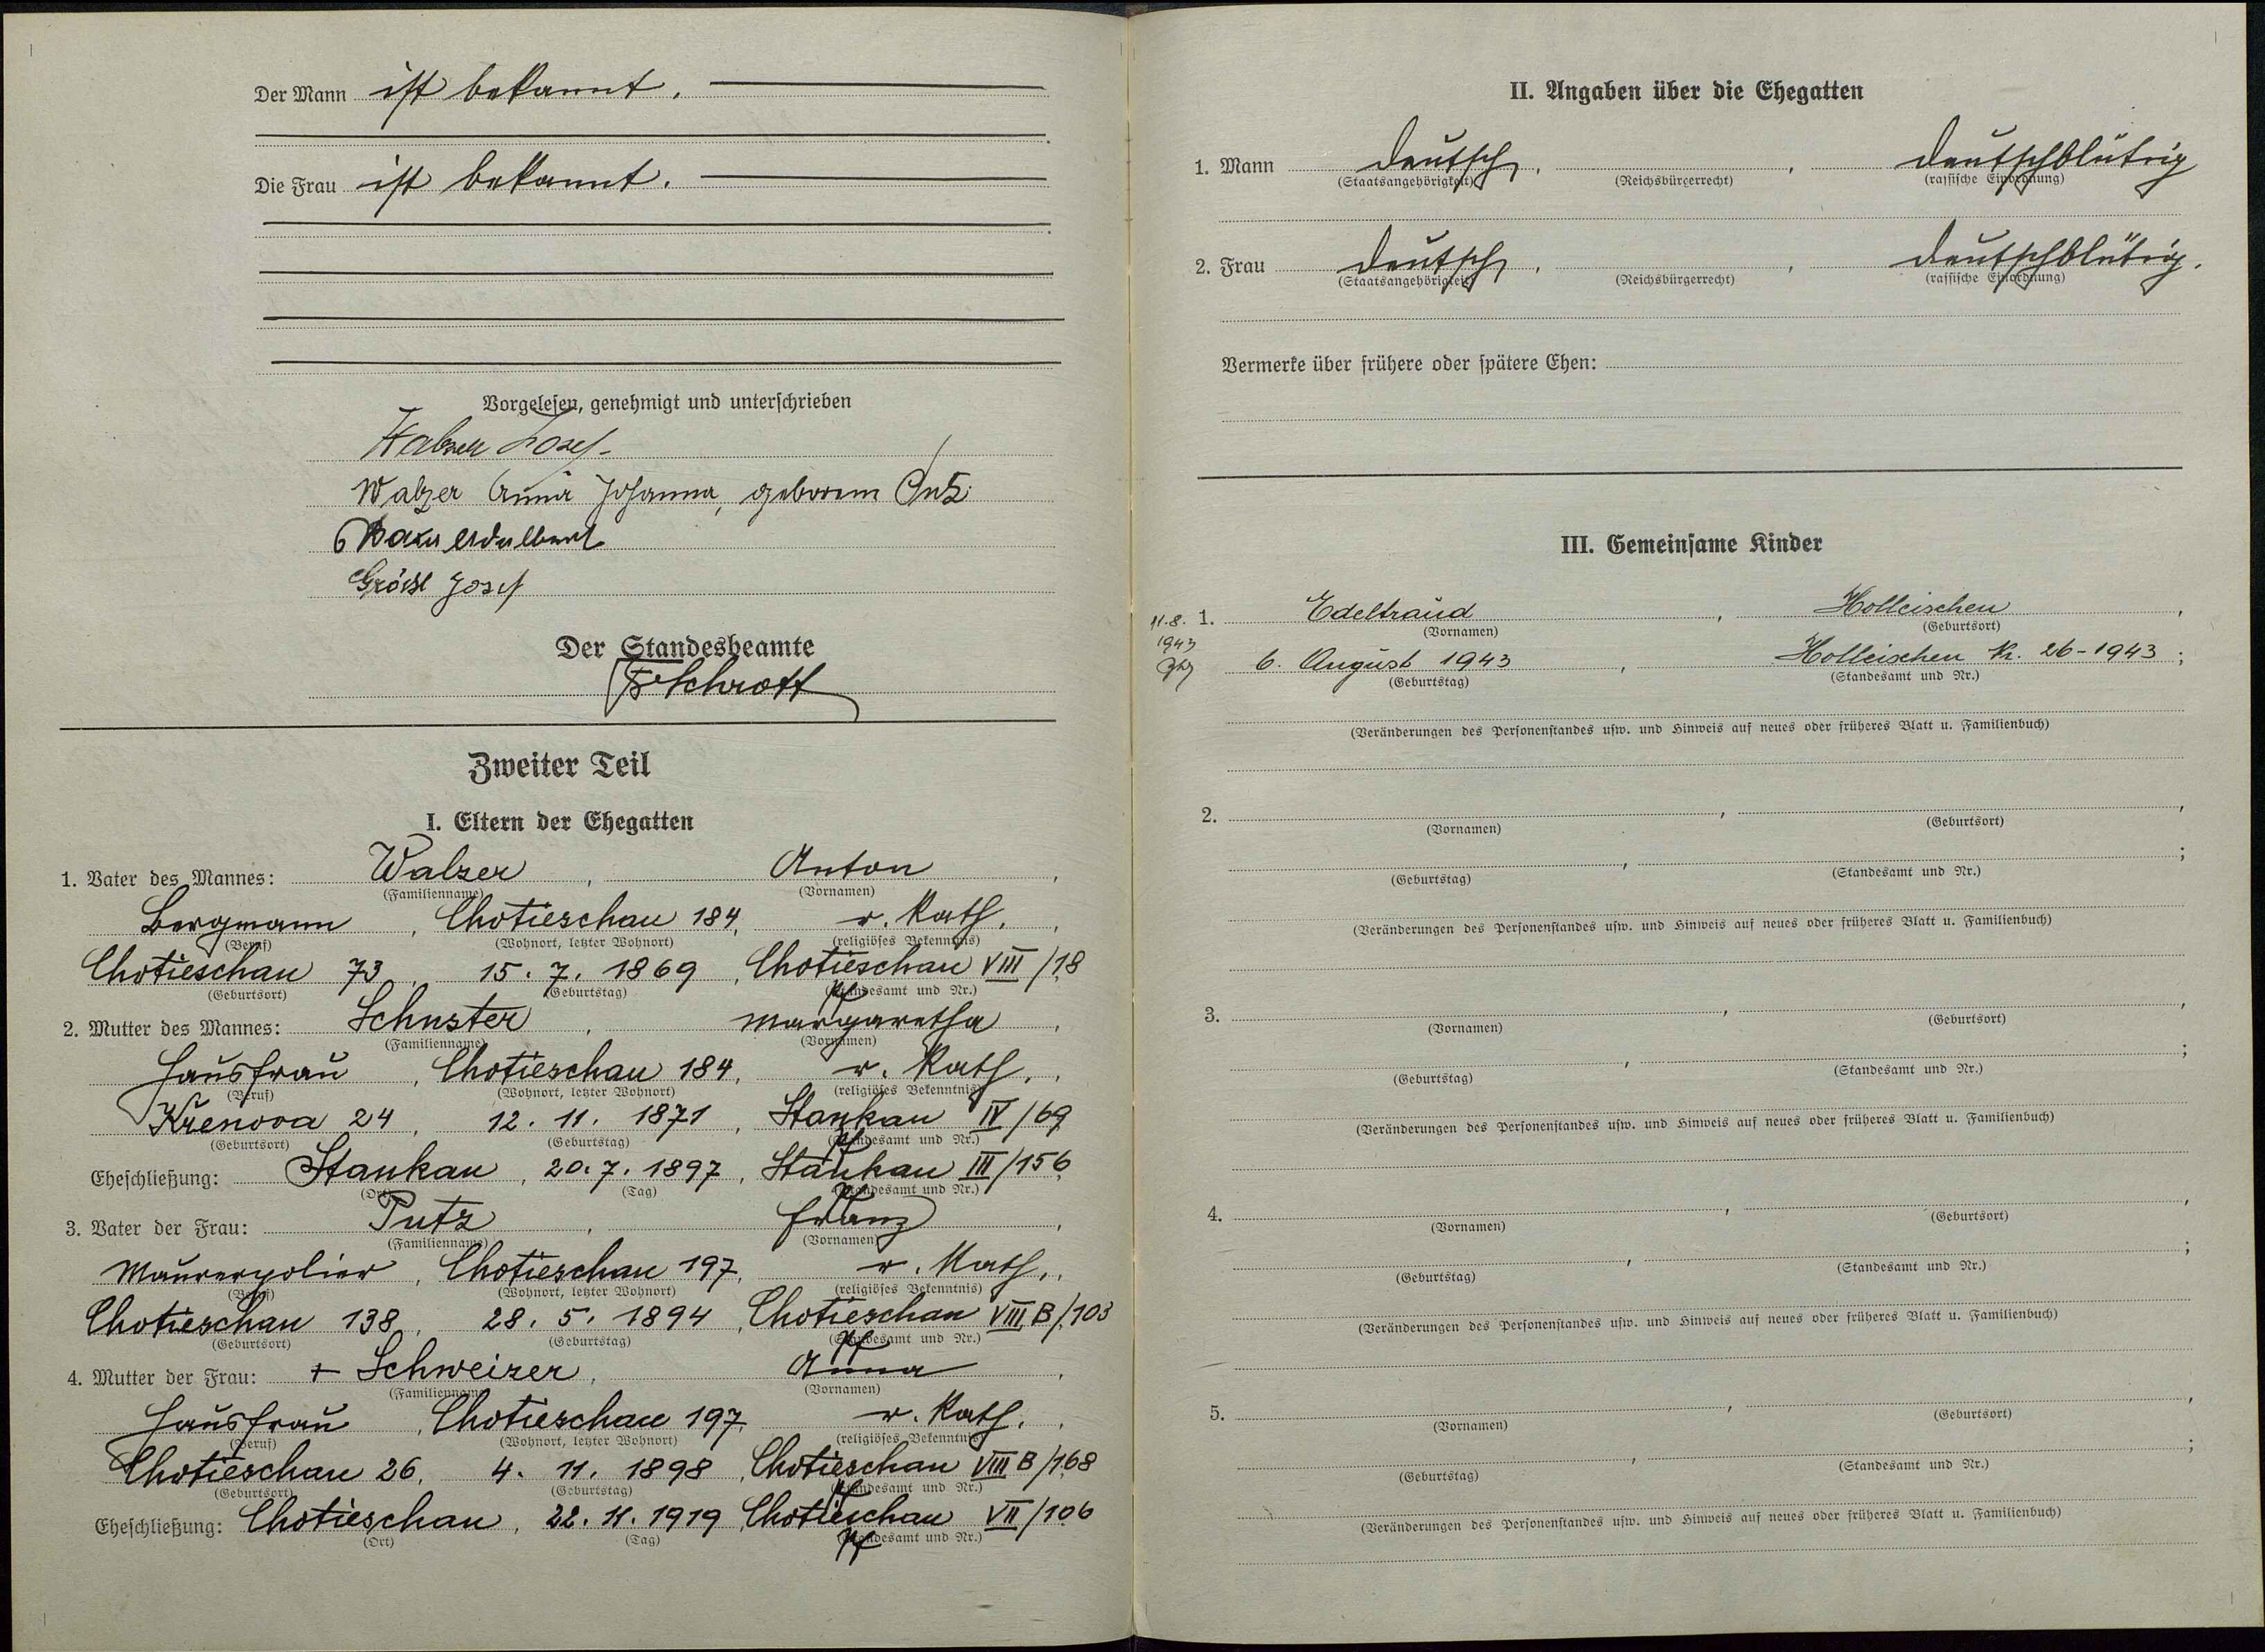 Der Mann ist bekannt.
Die Frau ist bekannt.
Vorgelesen, genehmigt und unterschrieben
Walzer Josef
Walzer Anna Johanna, geborene Putz
Adalbert
Gröschl Josef
Der Standesbeamte
Schrott
Zweiter Teil
I. Eltern der Ehegatten
1. Vater des Mannes: Walzer, Anton,
(Familienname) (Vornamen)
Bergmann, Chotieschau 184, r. kath.,
(Beruf) (Wohnort, letzter Wohnort) (religiöses Bekenntnis)
Chotieschau 73, 15. 7. 1869, Chotieschau VIII/18
(Geburtsort) (Geburtstag) (Standesamt und Nr.)
2. Mutter des Mannes: Schuster, Margaretha,
(Familienname) (Vornamen)
Hausfrau, Chotieschau 184, r. kath.,
(Beruf) (Wohnort, letzter Wohnort) (religiöses Bekenntnis)
Křenova 24, 12. 11. 1871, Stankau IV/69
(Geburtsort) (Geburtstag) (Standesamt und Nr.)
Eheschließung: Stankau, 20. 7. 1897, Stankau III/156
(Ort) (Tag) (Standesamt und Nr.)
3. Vater der Frau: Putz, Franz,
(Familienname) (Vornamen)
Maurerpolier, Chotieschau 197, r. kath.,
(Beruf) (Wohnort, letzter Wohnort) (religiöses Bekenntnis)
Chotieschau 138, 28. 5. 1894, Chotieschau VIII B/103
(Geburtsort) (Geburtstag) (Standesamt und Nr.)
4. Mutter der Frau: + Schweizer, Anna,
(Familienname) (Vornamen)
Hausfrau, Chotieschau 197, r. kath.,
(Beruf) (Wohnort, letzter Wohnort) (religiöses Bekenntnis)
Chotieschau 26, 4. 11. 1898, Chotieschau VIII B/168
(Geburtsort) (Geburtstag) (Standesamt und Nr.)
Eheschließung: Chotieschau, 22. 11. 1919, Chotieschau VII/106
(Ort) (Tag) (Standesamt und Nr.)
II. Angaben über die Ehegatten
1. Mann deutsch, , deutschblütig
(Staatsangehörigkeit) (Reichsbürgerrecht) (rassische Einordnung)
2. Frau deutsch, , deutschblütig.
(Staatsangehörigkeit) (Reichsbürgerrecht) (rassische Einordnung)
Vermerke über frühere oder spätere Ehen:
III. Gemeinsame Kinder
11.8. 1. Edeltraud, Holleischen,
(Vornamen) (Geburtsort)
1943
6. August 1943, Holleischen Nr. 26-1943;
(Geburtstag) (Standesamt und Nr.)
(Veränderungen des Personenstandes usw. und Hinweis auf neues oder früheres Blatt u. Familienbuch)
2. , ,
(Vornamen) (Geburtsort)
, ;
(Geburtstag) (Standesamt und Nr.)
(Veränderungen des Personenstandes usw. und Hinweis auf neues oder früheres Blatt u. Familienbuch)
3. , ,
(Vornamen) (Geburtsort)
, ;
(Geburtstag) (Standesamt und Nr.)
(Veränderungen des Personenstandes usw. und Hinweis auf neues oder früheres Blatt u. Familienbuch)
4. , ,
(Vornamen) (Geburtsort)
, ;
(Geburtstag) (Standesamt und Nr.)
(Veränderungen des Personenstandes usw. und Hinweis auf neues oder früheres Blatt u. Familienbuch)
5. , ,
(Vornamen) (Geburtsort)
, ;
(Geburtstag) (Standesamt und Nr.)
(Veränderungen des Personenstandes usw. und Hinweis auf neues oder früheres Blatt u. Familienbuch)